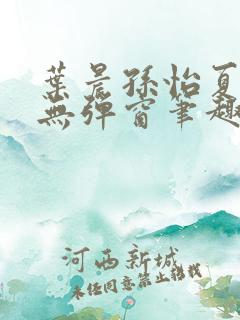 葉晨孫怡夏
無彈窗筆趣
河西新城
未经同意禁止转载